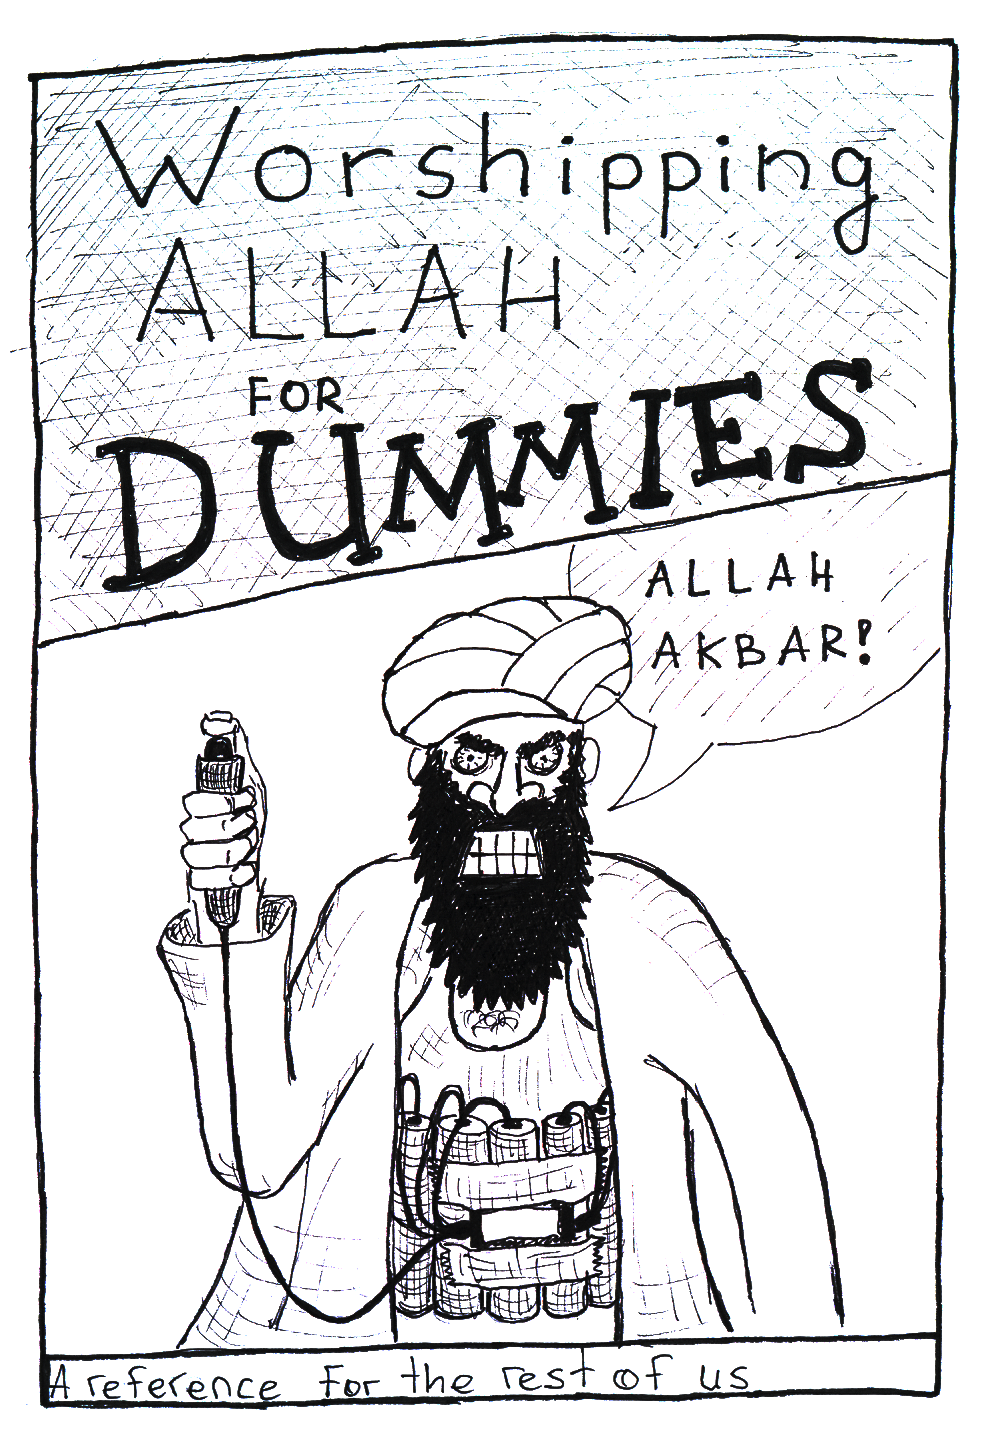 Worshipping
ALLAH
FOR
DUMMIES
ALLAH
AKBAR!
A reference For the rest of us